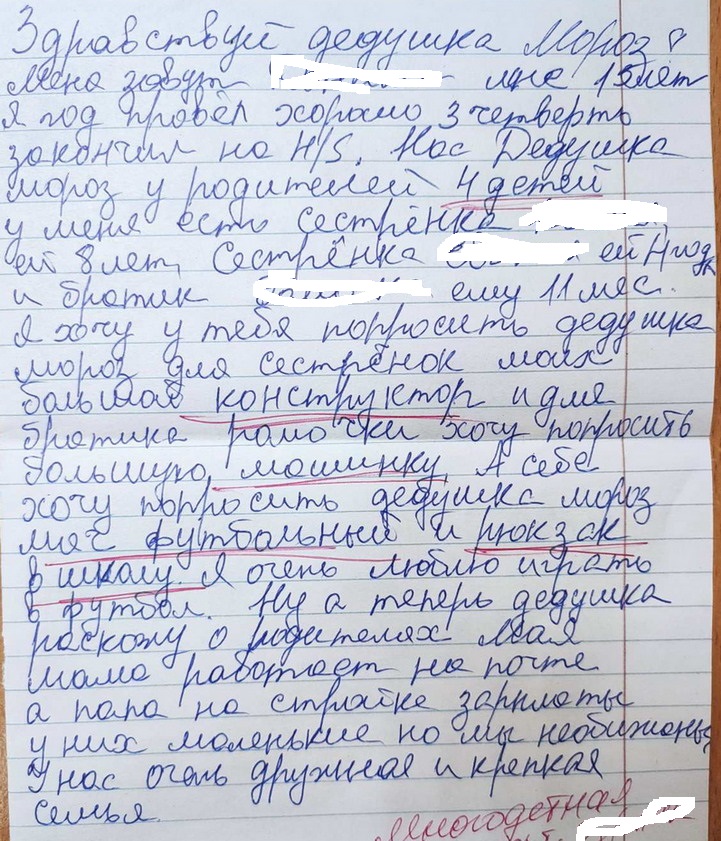 Здравствуй дедушка Мороз
Меня зовут мне 15лет
я год провёл хорошо 3 четверть
закончил на 4/5. Нас Дедушка
мороз у родителей 4 детей
у меня есть сестрёнка
ей 8 лет, Сестрёнка ей 4 года
и братик ему 11 мес.
я хочу у тебя попросить дедушка
мороз для сестрёнок моих
большой конструктор и для
братика хочу попросить
большую машинку А себе
хочу попросить дедушка мороз
мяч футбольный и рюкзак
в школу. Я очень люблю играть
в футбол. Ну а теперь дедушка
раскажу о родителях Мая
мама работает на почте
а папа на стройке зарплаты
у них маленькие но мы необижаемся
У нас очень дружная и крепкая
семья.
Многодетная